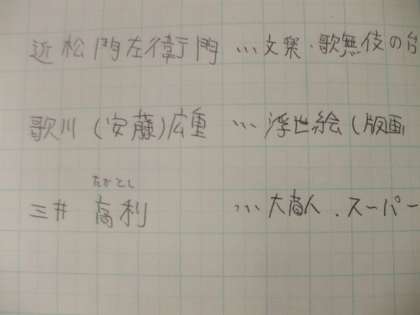 近松門左衛門 … 文楽・歌無伎の台
歌川(安藤)広重 … 浮世絵(版画
たかとし
三井 高利 … 大商人.スーパー